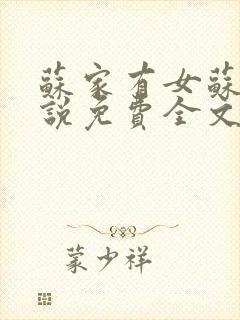 蘇家有女蘇
說免費全文
蒙少祥